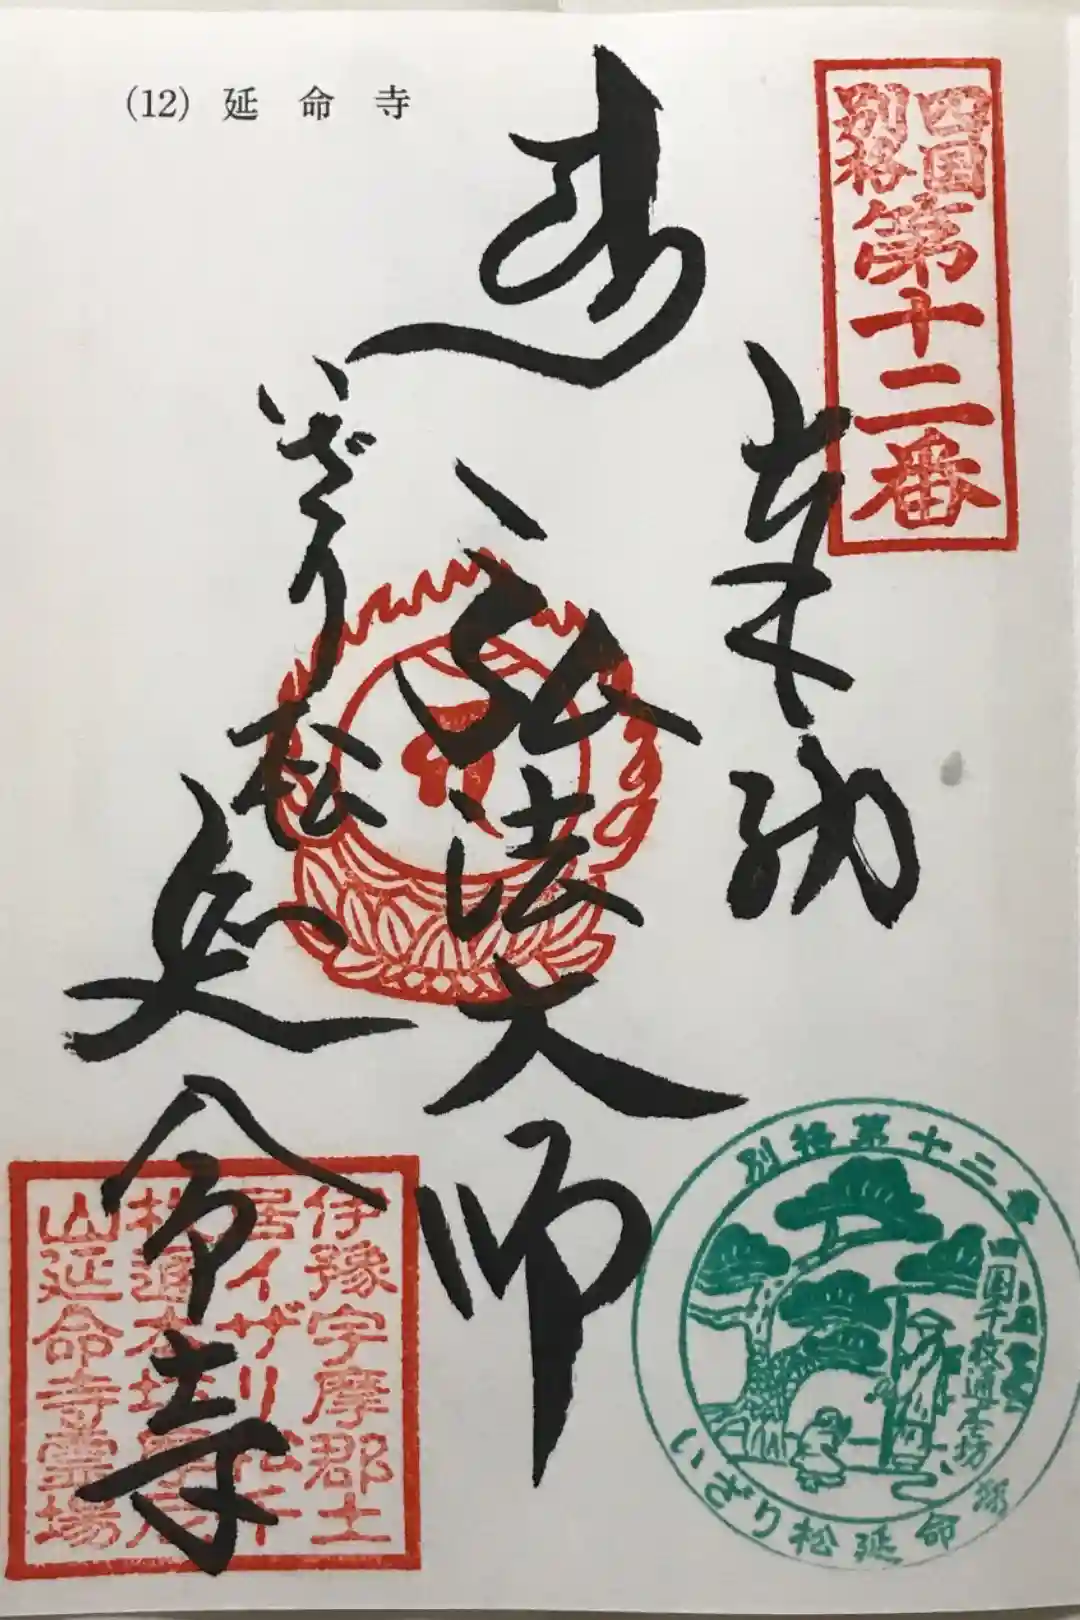 (12) 延命寺
四国
別格
第十二番
奉納
弘法大師
いざり松
延命寺
伊豫宇摩郡土
居イザリ松千
枚通本坊摩尼
山延命寺霊場
別格第十二番
千枚通本坊
いざり松延命